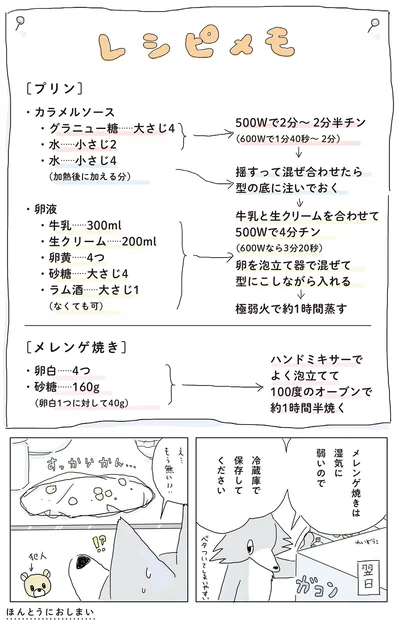 レシピメモ
［プリン］
・カラメルソース
・グラニュー糖……大さじ4
・水……小さじ2
・水……小さじ4
（加熱後に加える分）
500Wで2分〜2分半チン
（600Wで1分40秒〜2分）
揺すって混ぜ合わせたら
型の底に注いでおく
・卵液
・牛乳……300ml
・生クリーム……200ml
・卵黄……4つ
・砂糖……大さじ4
・ラム酒……大さじ1
（なくても可）
牛乳と生クリームを合わせて
500Wで4分チン
（600Wなら3分20秒）
卵を泡立て器で混ぜて
型にこしながら入れる
極弱火で約1時間蒸す
［メレンゲ焼き］
・卵白……4つ
・砂糖……160g
（卵白1つに対して40g）
ハンドミキサーで
よく泡立てて
100度のオーブンで
約1時間半焼く
メレンゲ焼きは
湿気に
弱いので
冷蔵庫で
保存して
ください
ベタついてしまいやすい
れいぞうこ
翌日
ガコン
え…
もう無い!?
すっからかん…
!?
犯人
ほんとうにおしまい